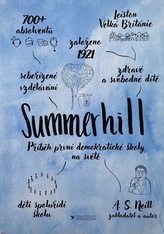 700+
absolventů
Leiston
Velká Británie
založeno
1921
sebeřízené
vzdělávání
zdravé a
svobodné dítě
Summerhill
Příběh první demokratické školy
na světě
děti spoluřídí
školu
A S Neill
zakladatel a autor